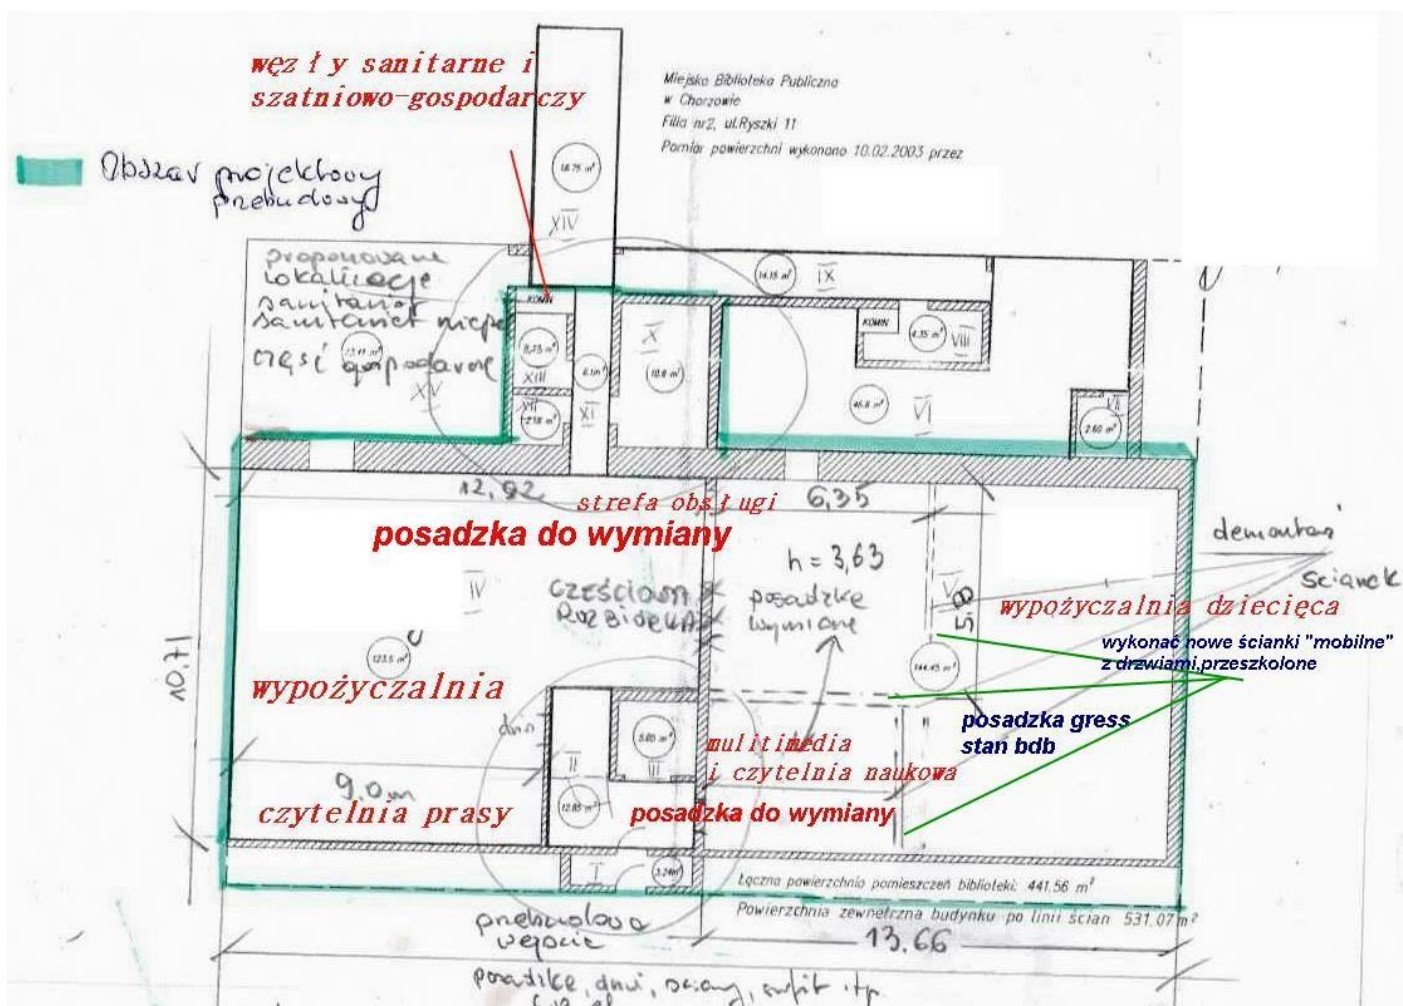 węzły sanitarne i
szatniowo-gospodarczy
Miejska Biblioteka Publiczna
w Chorzowie
Filia nr2, ul.Ryszki 11
Pomiar powierzchni wykonano 10.02.2003 przez
Obszar projektowy
przebudowy
18.75 m²
XIV
proponowane
lokalizacje
sanitariat
sanitariat niepe
część gospodarczą
XV
KOMIN
XIII
XII
XI
X
10.8 m²
14.15 m²
IX
KOMIN
4.35 m²
VIII
46.8 m²
VI
VII
2.60 m²
12,92
6,35
strefa obsługi
posadzka do wymiany
h = 3,63
IV
częściowa
Rozbiórka
posadzkę
wymianę
V
5,8
demontaż
ścianek
wypożyczalnia dziecięca
wykonać nowe ścianki "mobilne"
z drzwiami,przeszkolone
123.5 m²
144.45 m²
10,71
wypożyczalnia
posadzka gress
stan bdb
drzwi
5.05 m²
III
II
mulitimedia
i czytelnia naukowa
9,0 m
12.85 m²
czytelnia prasy
posadzka do wymiany
I
3.24m²
Łączna powierzchnia pomieszczeń biblioteki: 441.56 m²
Powierzchnia zewnętrzna budynku po linii ścian 531.07 m²
przebudowa
wejście
13.66
posadzkę, drzwi, ściany, sufit itp.